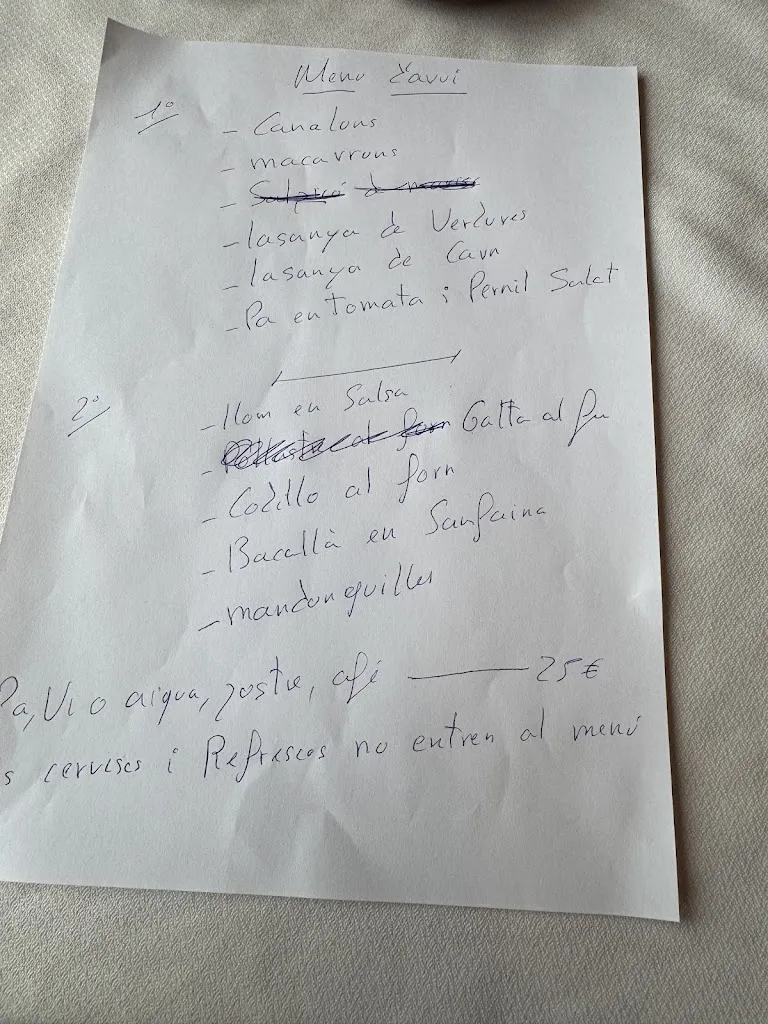 Menu d'avui
1º
- Canalons
- macarrons
- lasanya de Verdures
- lasanya de Carn
- Pa en Tomata i Pernil Salat
2º
- llom en Salsa
- Galta al
- Codillo al forn
- Bacallà en Sanfaina
- mandonguilles
Pa, Vi o aigua, postre, café —— 25 €
s cerveses i Refrescos no entren al menú